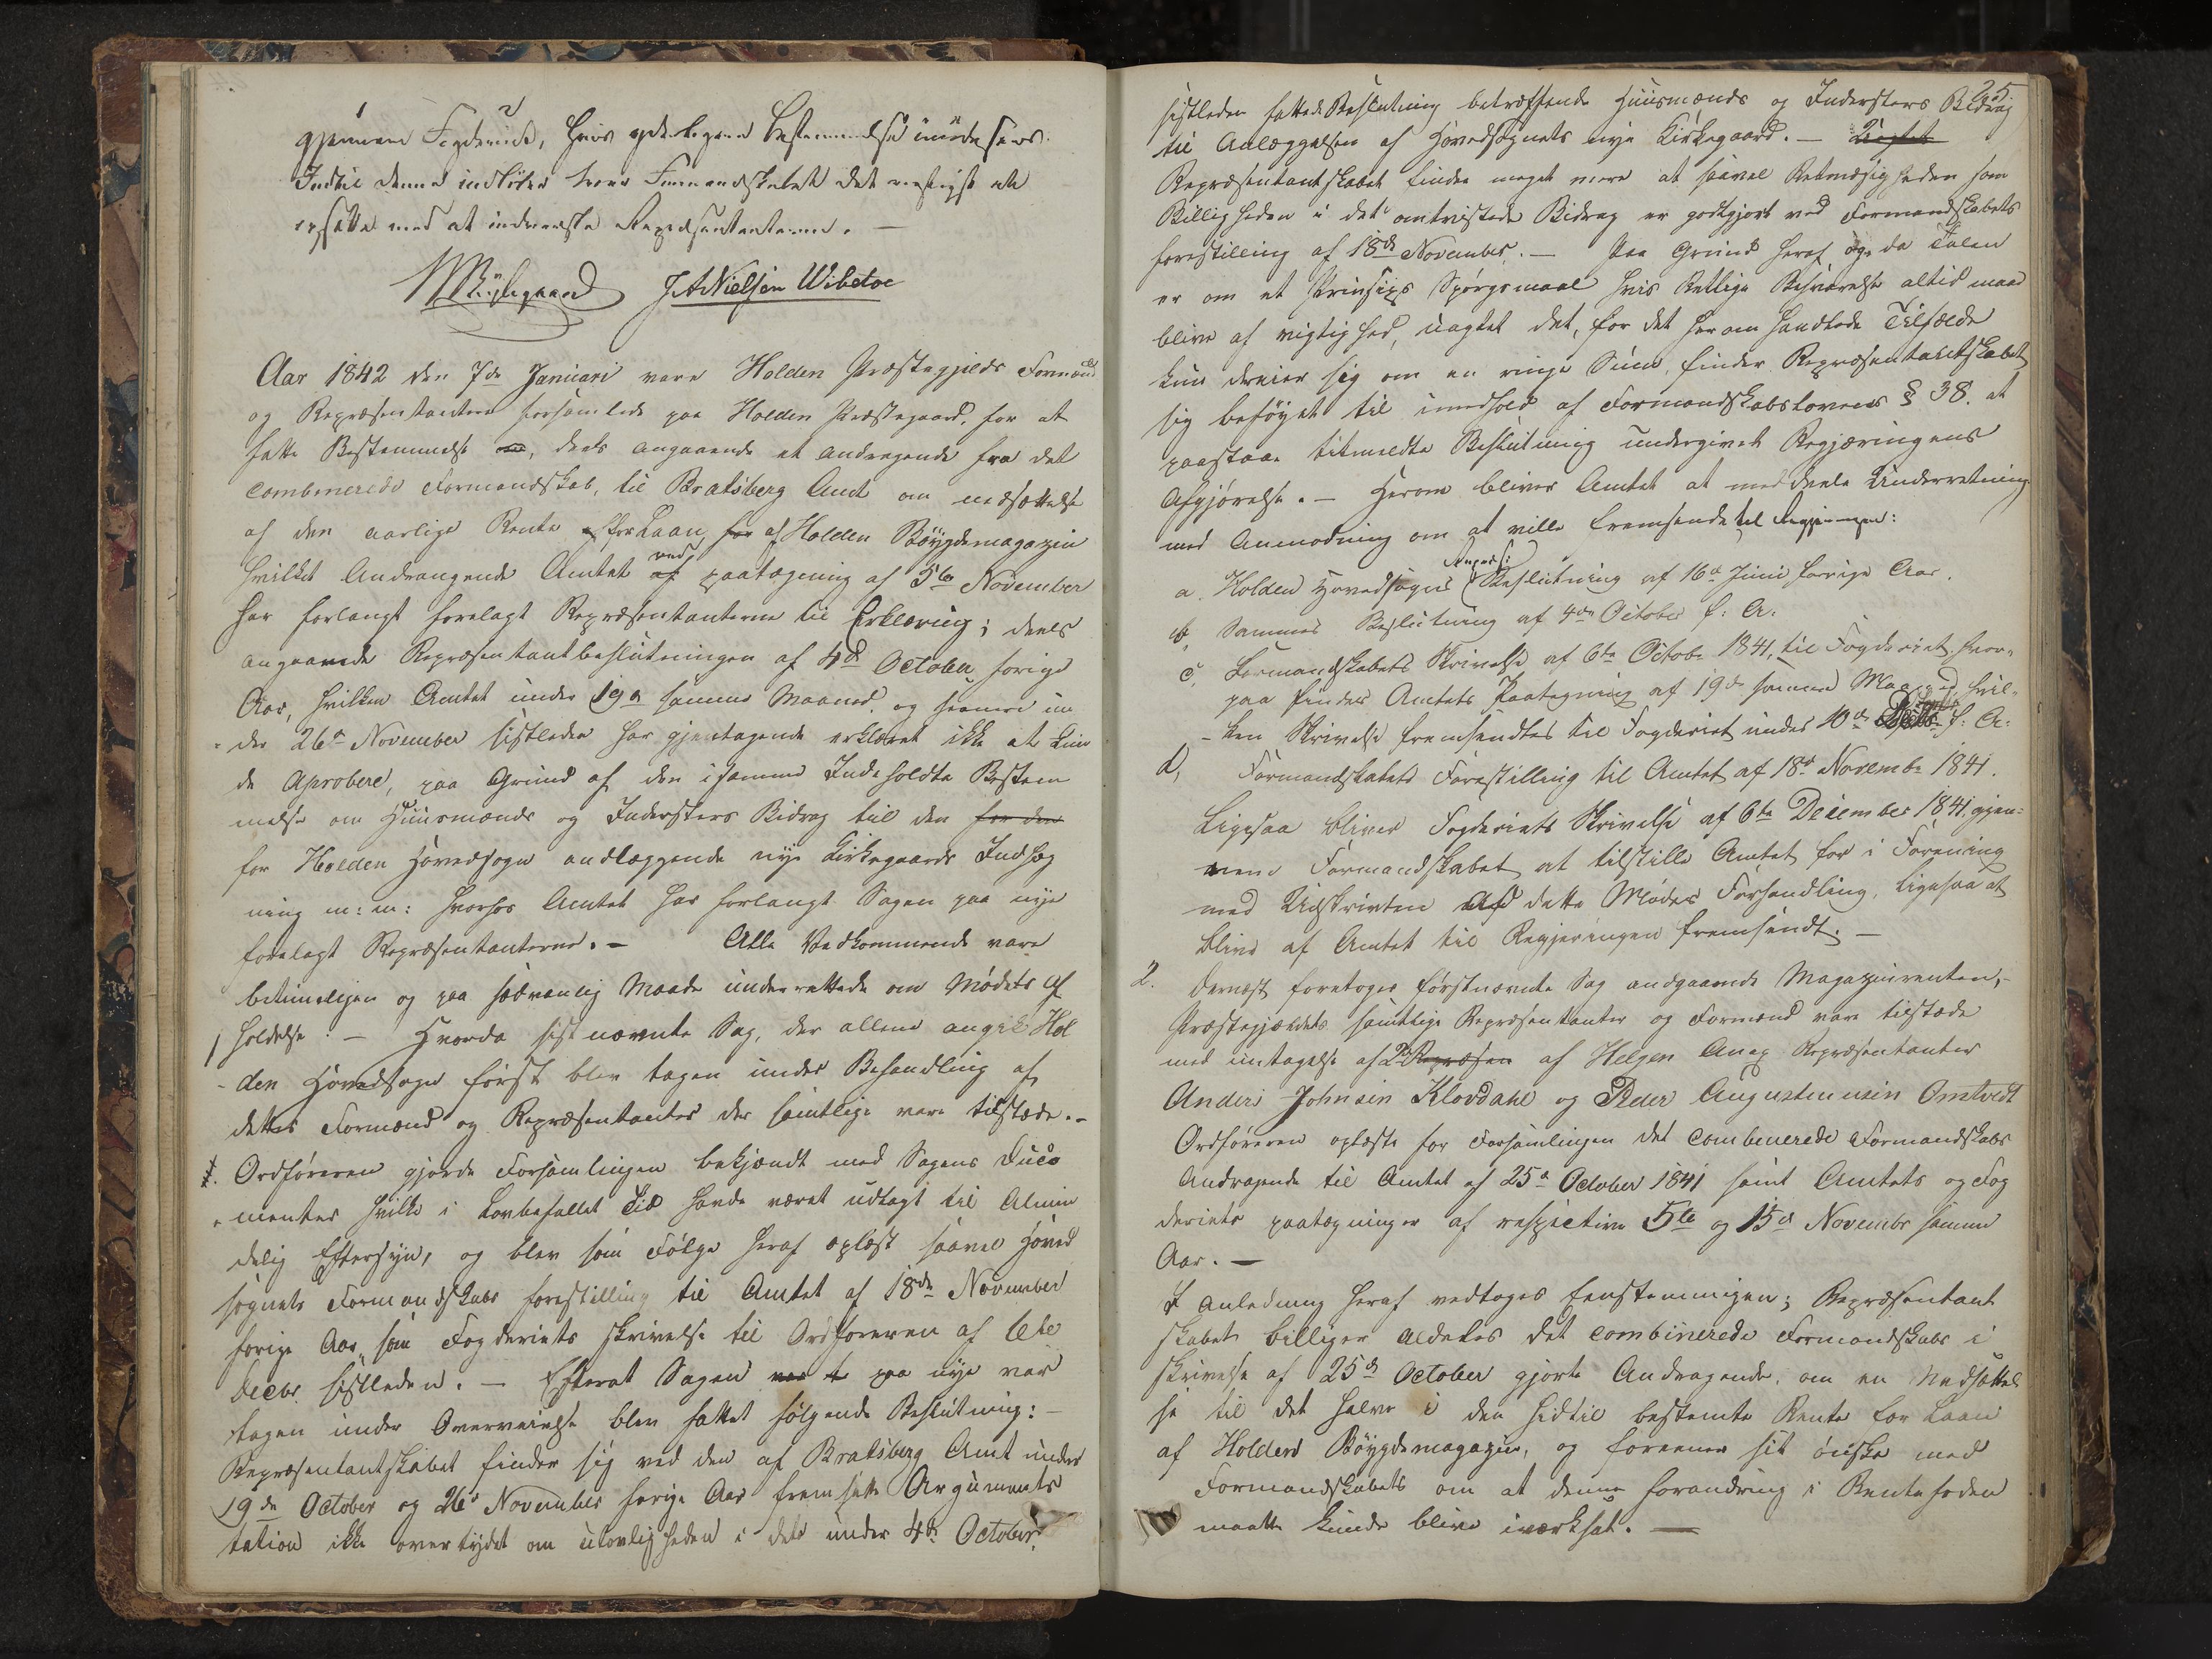 gjennem Fogderiet, hvis yderligere Bestemmelse imødesees.
Indtil denne indløber troer Formandskabet det unødigt at
opsætte med at indvarsle Repræsentanterne. —
J A Nielsen Wibetoe
Aar 1842 den 7de Januari vare Holden Præstegjelds Formænd
og Repræsentantere forsamlede paa Holden Præstegaard, for at
fatte Bestemmelse om, deels angaaende et andragende fra det
combinerede Formandskab, til Bratsberg Amt om nedsættelse
af den aarlige Rente for Laan for af Holden Bøygdemagazin
hvilket Andragende Amtet af ved paategning af 5te November
har forlangt forelagt Repræsentanterne til Erklæring; deels
angaaende Repræsentantbeslutningen af 4de October forige
Aar, hvilken Amtet under 19de samme Maaned, og seenere un
der 26de November sistleden har gjentagende erklæret ikke at kun
de Aprobere, paa Grund af den i samme Indeholdte Bestem
melse om Huusmænds og Indersters Bidrag til den for den
for Holden Hovedsogn andlæggende nye Kirkegaards Indheg
ning m: m: hvorhos Amtet har forlangt Sagen paa nye
forelagt Repræsentanterne. — Alle Vedkommende vare
betimeligen og paa sædvanlig Maade underrettede om Mødets Af
holdelse. — Hvorda sistnævnte Sag, der allene angik Hol
den Hovedsogn først blev tagen under Behandling af
dettes Formænd og Repræsentanter der samtlige vare tilstæde. —
1. Ordføreren gjorde Forsamlingen bekjændt med Sagens Docu
menter hvilke i Lovbefallet Tid havde været udlagt til Almin
delig Eftersyn, og blev som Følge heraf oplæst saavel Hoved
sognets Formandskabs forestilling til Amtet af 18de November
forige Aar, som Fogderiets skrivelse til Ordføreren af 6te
Decbr. sistleden. — Efterat Sagen var t paa nye var
tagen under Overveielse blev fattet følgende Beslutning: —
Repræsentantskabet finder sig ved den af Bratsberg Amt under
19de October og 26de November forige Aar fremsatte Argumente
tation ikke overtydet om ulovligheden i dets under 4de October
25
sistleden fattede Beslutning betræffende Huusmænds og Indersters Bidrag
til Anlæggelsen af Hovedsognets nye Kirkegaard. —
Repræsentantskabet finder meget mere at saavel Retmæsigheden som
Billigheden i det omtvistede Bidrag er godtgjort ved Formandskabets
forestilling af 18de November. — Paa Grund heraf og da Talen
er om et Prinsips Spørgsmaal hvis Rettige Besvarelse altid maa
blive af vigtighed, uagtet det, for det her om handlede Tilfælde
kun dreier sig om en ringe Sum, finder Repræsentantskabet
sig beføyet til i medhold af Formandskabslovens § 38. at
paastaae bemeldte Beslutning undergivet Regjæringens
Afgjørelse. — Herom bliver Amtet at meddeele Underretning
med Anmodning om at ville fremsende til Regjæringen:
a. Holden Hovedsogns Repræs: Beslutning af 16de Juni forige Aar.
b, Sammes Beslutning af 4de October f: A:
c, Formandskabets Skrivelse af 6te Octobr 1841, til Fogderiet, hvor-
paa findes Amtets Paategning af 19de samme Maaned, hvil-
ken Skrivelse fremsendtes til Fogderiet under 10de f: A:
d, Formandskabets Forestilling til Amtet af 18de Novembr 1841.
Ligesaa bliver Fogderiets Skrivelse af 6te December 1841, gjen-
nem Formandskabet at tilstille Amtet for i Forening
med Udskrivten Af dette Mødes Forhandling, ligesaa at
blive af Amtet til Regjeringen fremsendt. —
2. Dernæst foretoges førstnævnte Sag andgaaende Magazinrenten,-
Præstegjældets samtlige Repræsentanter og Formænd vare tilstæde
med undtagelse af 2de Repræsen af Helgen Anex Repræsentanter
Anders Johnsin Klovdahl og Peder Augustinusin Omtvedt
Ordføreren oplæste for Forsamlingen det combinerede Formandskabs
Andragende til Amtet af 25de October 1841 samt Amtets og Fog
deriets paategninger af respective 5te og 15de Novembr samme
Aar. —
I Anledning heraf vedtoges Eenstemmigen; Repræsentant
skabet billiger aldeles det combinerede Formandskabs i
skrivelse af 25de October gjorte Andragende, om en Nedsættel
se til det halve i den hidtil bestemte Rente for Laan
af Holdens Bøygdemagazin, og foreener sit ønske med
Formandskabets om at denne forandring i Rentefoden
maatte kunde blive iværksat. —